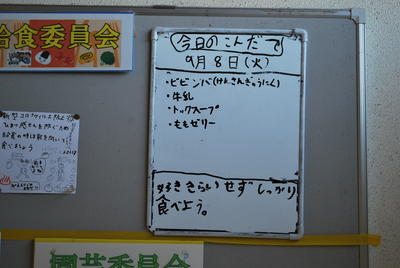 給食委員会
今日のこんだて
9月8日(火)
・ビビンバ(けんさんぎゅうにく)
・牛乳
・トックスープ
・ももゼリー
好ききらいせずしっかり
食べよう。
新型コロナウイルス防止
給食の時は前を向いて
食べましょう
園芸委員会